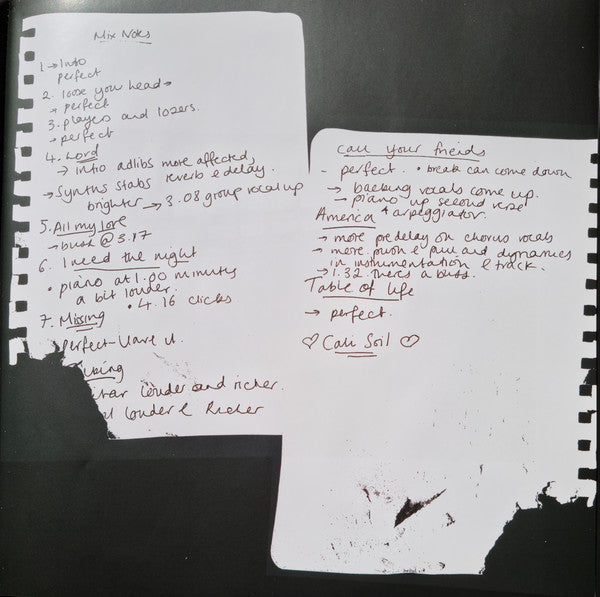 Mix Notes
1. → Intro
perfect
2. loose your head →
→ perfect
3. players and lozers.
→ perfect
4. Lord
→ intro adlibs more affected,
reverb & delay.
→ Synths stabs
brighter → 3.08 group vocal up
5. All my love
→ buzz @ 3.17
6. I need the night
• piano at 1.00 minutes
a bit louder.
• 4.16 clicks
7. Missing
perfect leave it.
louder and richer.
louder & Richer
call your friends
- perfect. • break can come down
→ backing vocals come up.
→ piano up second verse
+ arpeggiator.
America
→ more predelay on chorus vocals
→ more push & pull and dynamics
in instrumentation & track.
→ 1.32. theres a buzz.
Table of life
→ perfect.
♡ Cali Soil ♡